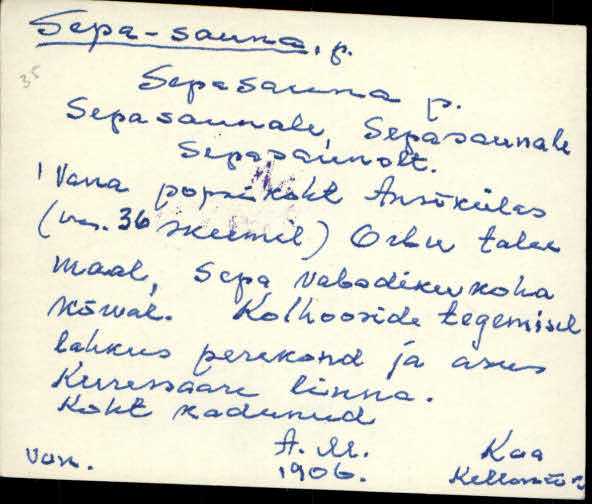 Sepa-sauna, p.
35
Sepasauna p.
Sepasaunale, Sepasaunale
Sepasaunolt.
Vana popsikoht Ansikülas
(vas. 36 skeemil) Orbu talu
maal, Sepa vabadikukoha
kõwal. Kolhooside tegemisel
lahkus perekond ja asus
Kuressaare linna.
Koht kadunud
A. M. Kaa
Van. 1906.